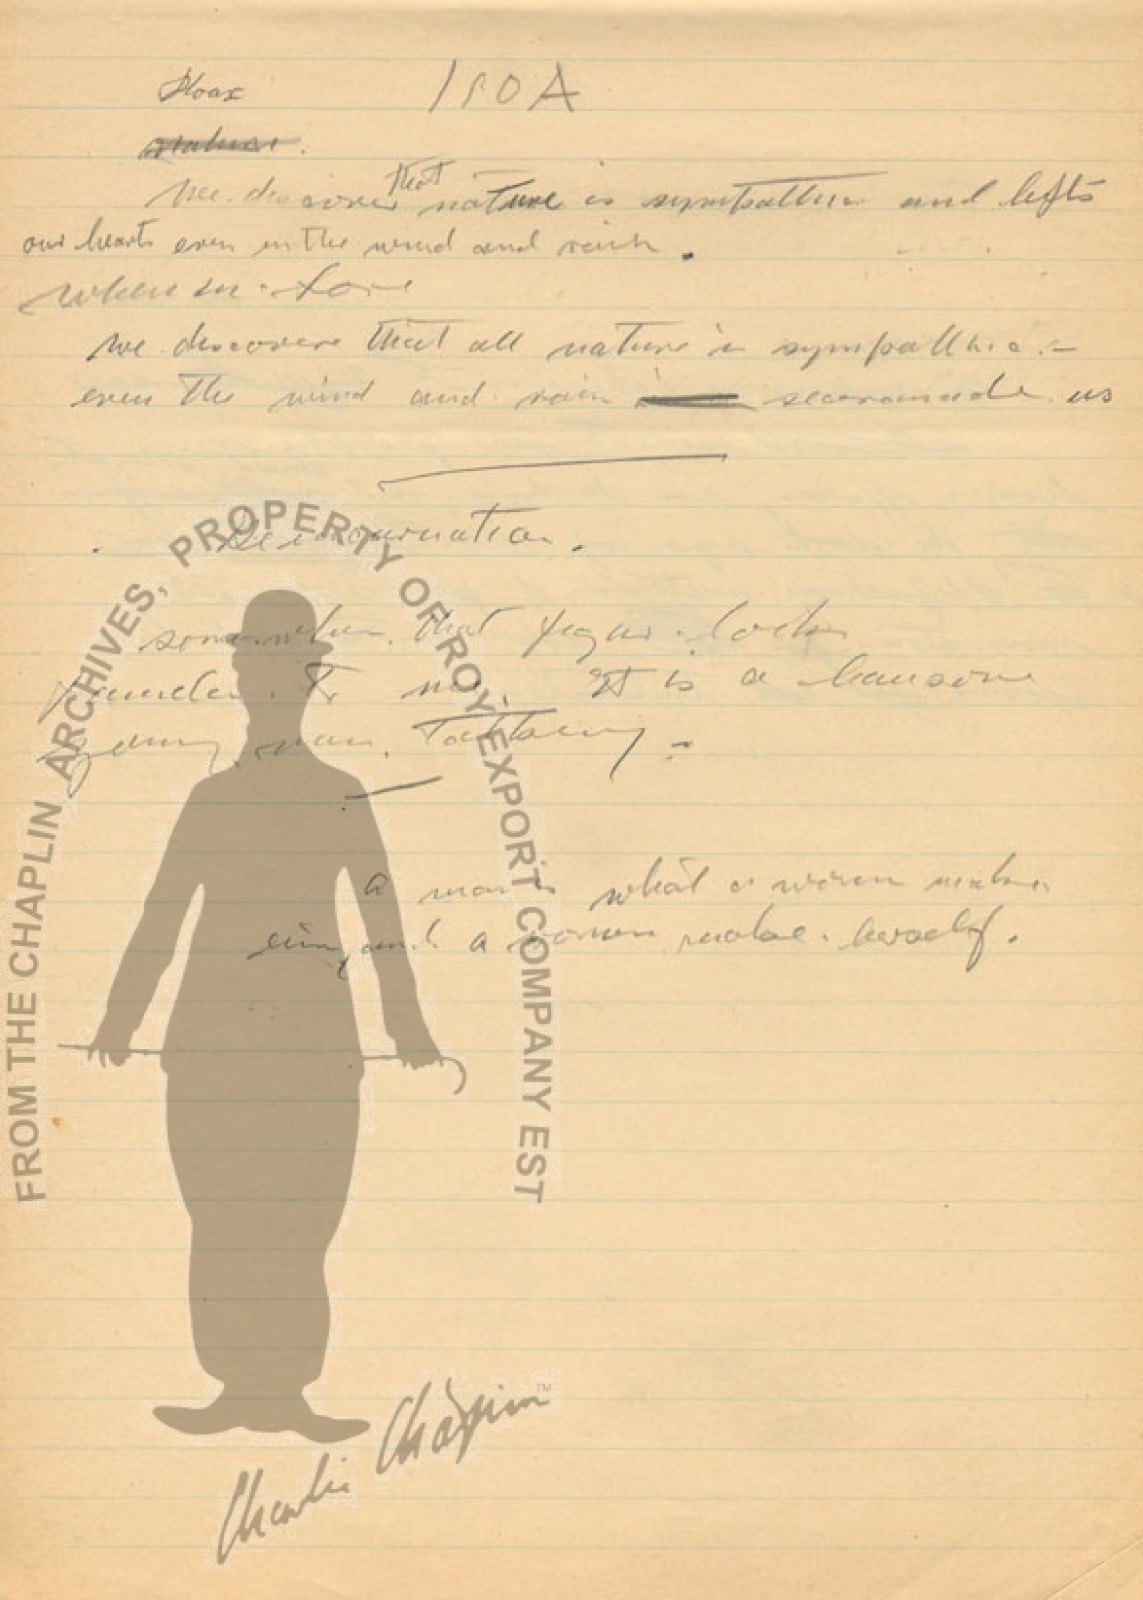 Hoax 150A
nature.
We discover that nature is sympathic and lifts
our hearts even in the wind and rain.
When in love
we discover that all nature is sympathic -
even the wind and rain us
Reincarnation.
somewhen that looks
to me. It is a hansome
young man
a man is what a women makes
him, and a women make herself.
FROM THE CHAPLIN ARCHIVES, PROPERTY OF ROY EXPORT COMPANY EST
Charlie Chaplin TM